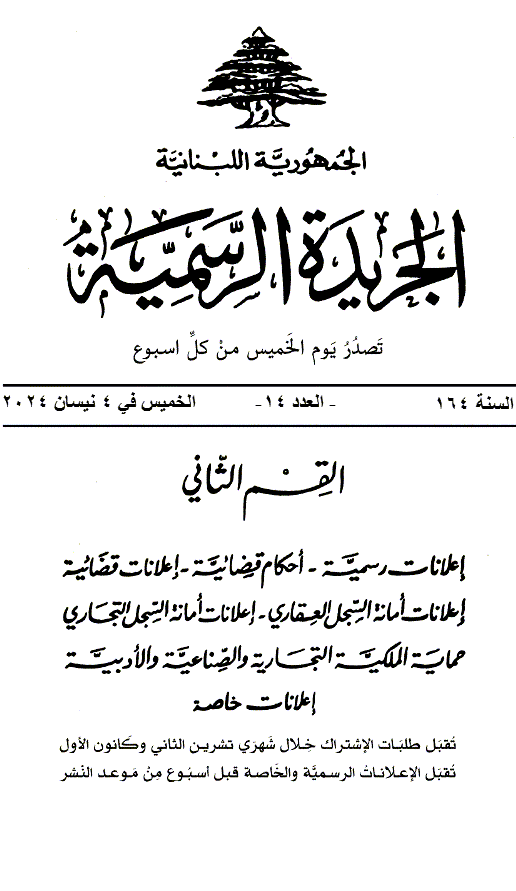 الجُمهُوريَّة اللبْنانيَّة
الجَريدَة الرسَّمِيَّة
تَصدُرُ يَوم الخَميس منْ كلِّ اسبوع
السنة ١٦٤ - العدد ١٤- الخميس في ٤ نيسان ٢٠٢٤
القِسْم الثَّاني
إعلانات رسميَّة - أحكام قضائيَّة - إعلانات قضائية
إعلانات أمانة السِّجل العقاري - إعلانات أمانة السِّجل التجاري
حماية الملكيَّة التجارية والصِّناعيَّة والأدبيَّة
إعلانات خاصة
تُقبَل طلبَات الإشتراك خِلال شَهرَي تشرين الثاني وكَانون الأول
تُقبَل الإعلاناتُ الرسميَّة والخَاصة قبل أسبُوع مِنْ مَوعد النَشر